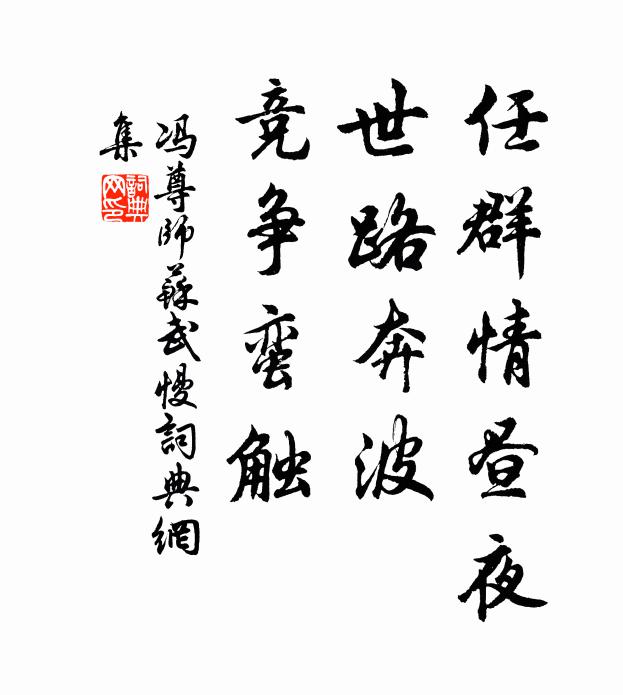 任群情昼夜
世路奔波
竞争蛮触
冯尊師蘇武慢詞典網
集
詞典网印